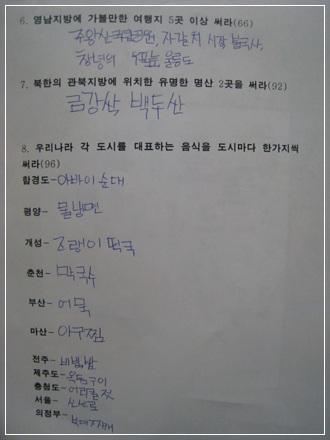 6. 영남지방에 가볼만한 여행지 5곳 이상 써라(66)
주왕산국립공원, 자갈치 시장 불국사,
창녕의 우포늪 울릉도
7. 북한의 관북지방에 위치한 유명한 명산 2곳을 써라(92)
금강산 백두산
8. 우리나라 각 도시를 대표하는 음식을 도시마다 한가지씩
써라(96)
함경도-아바이순대
평양- 물냉면
개성- 조랭이 떡국
춘천- 막국수
부산- 어묵
마산- 아구찜
전주- 비빔밥
제주도- 옥돔구이
충청도- 어리굴젓
서울-
의정부- 부대찌개